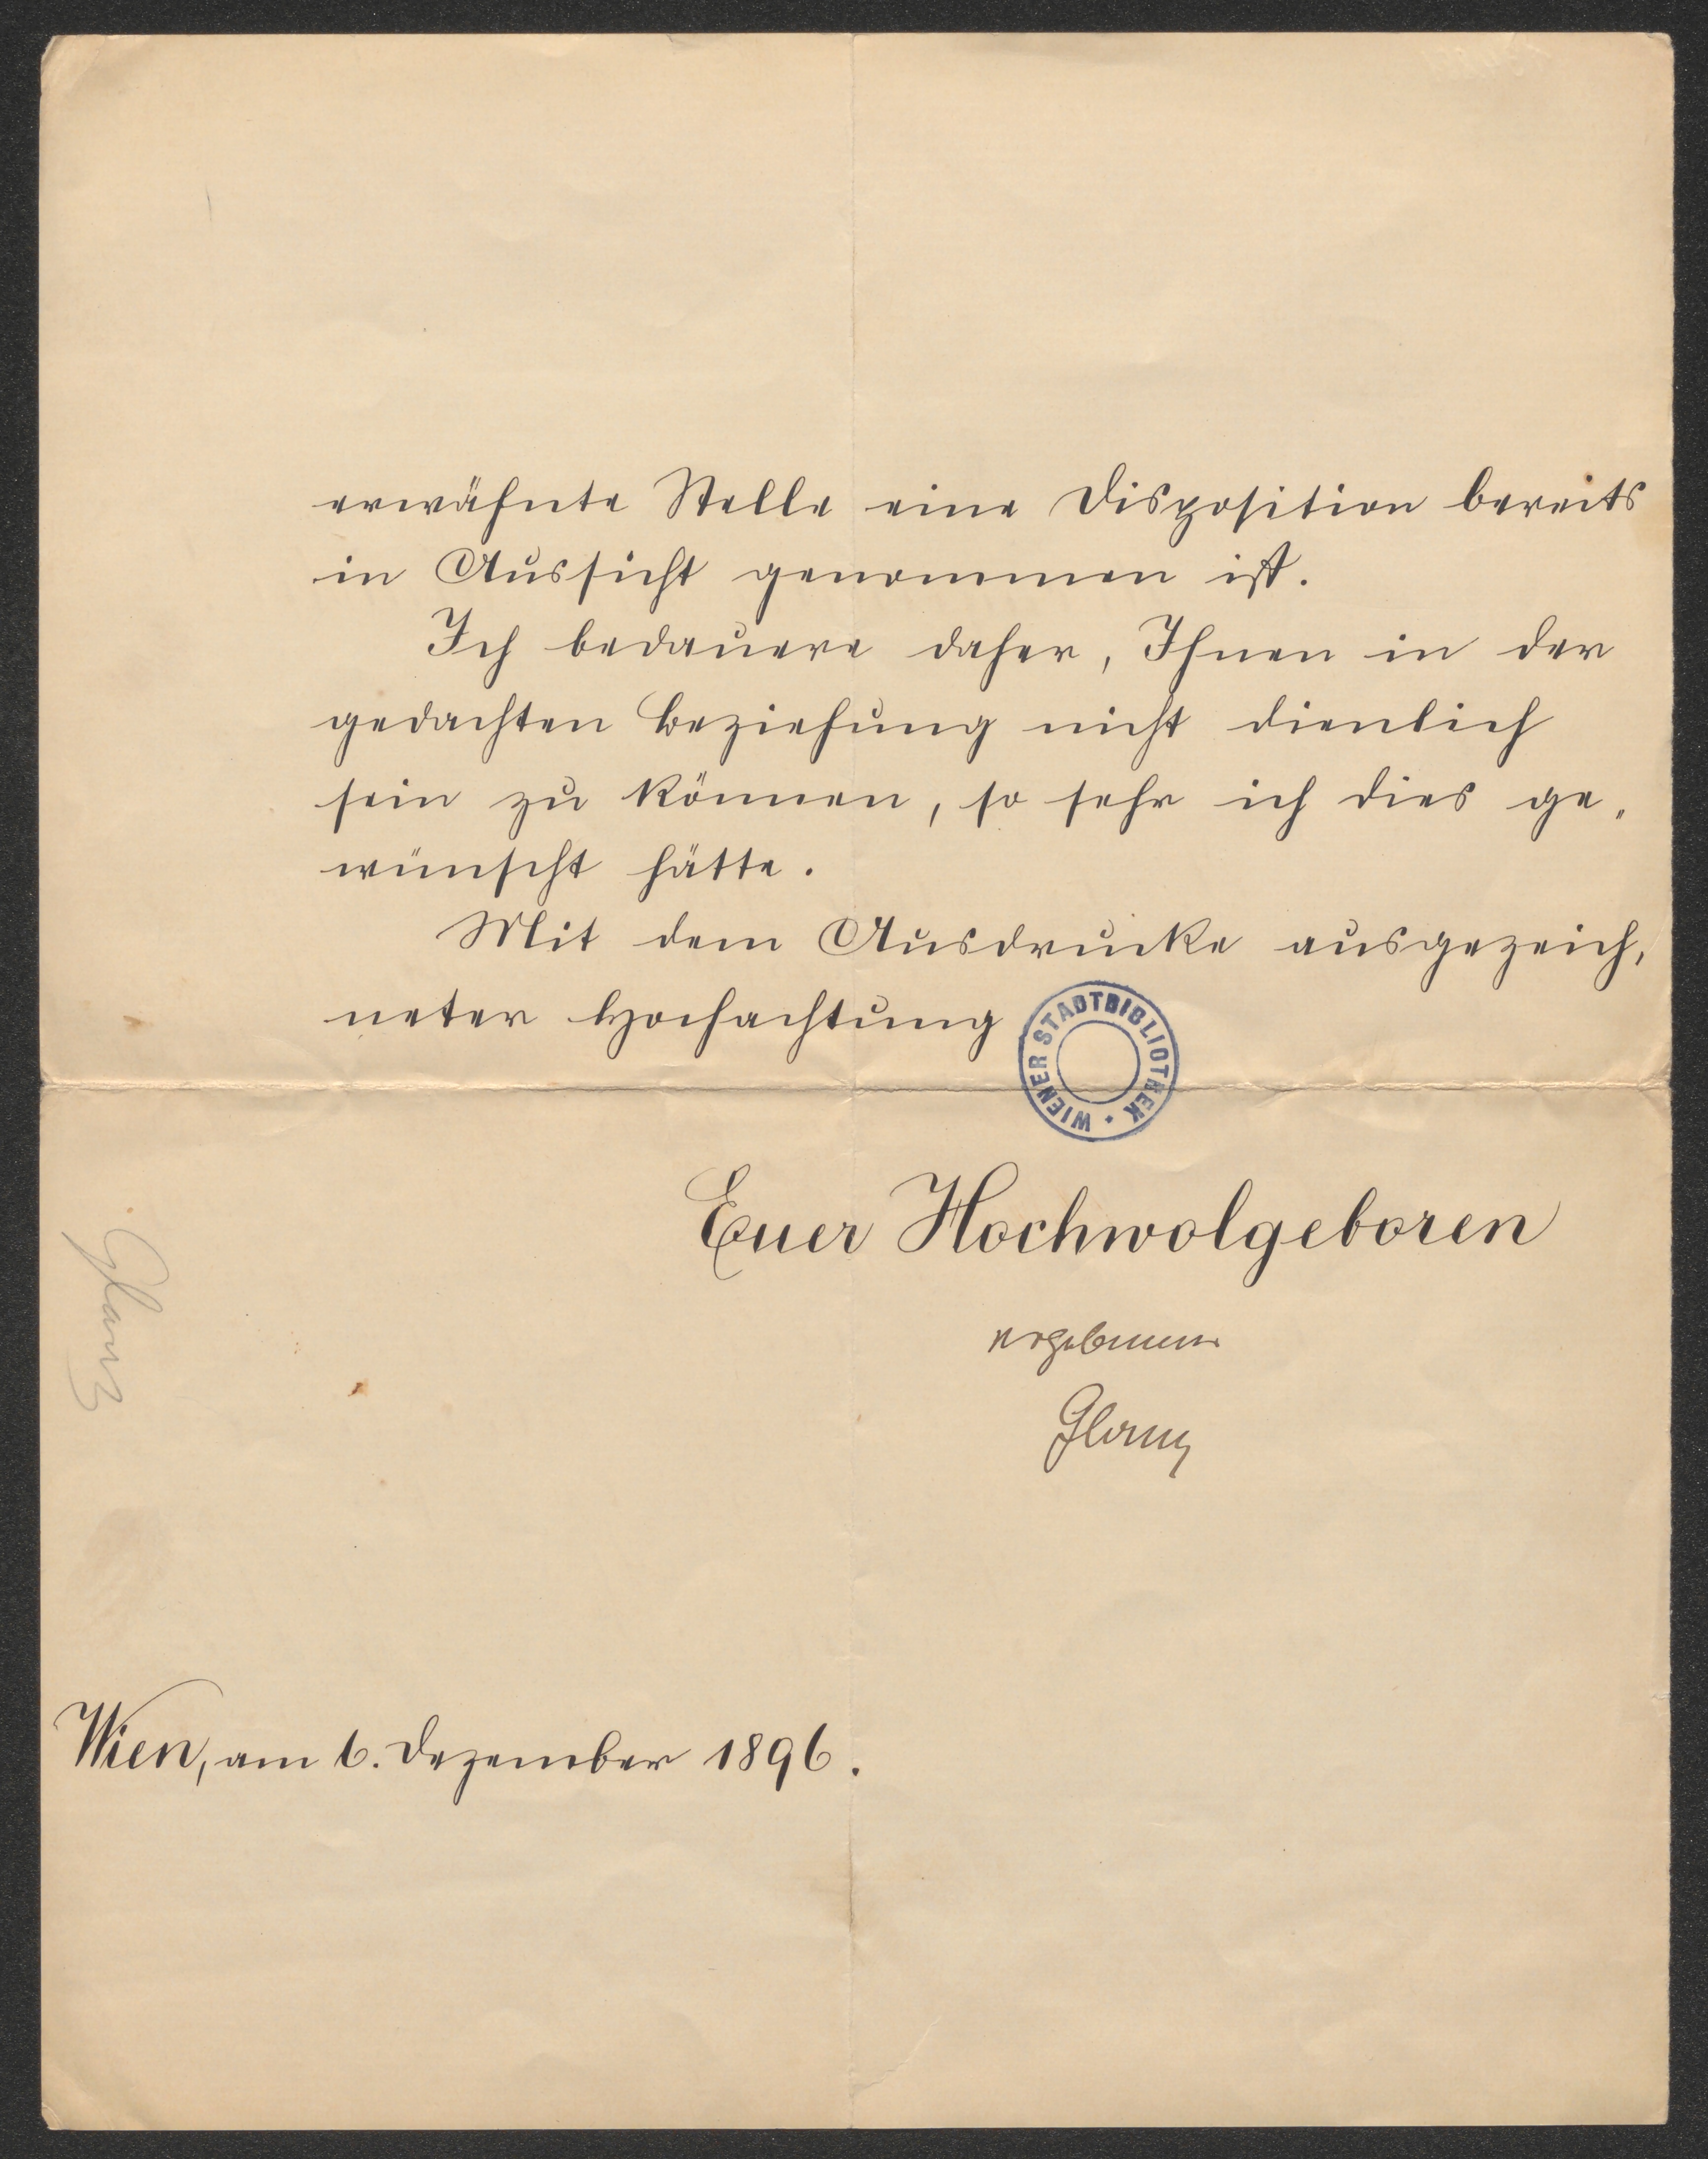 erwähnte Stelle eine Disposition bereits
in Aussicht genommen ist.
Ich bedauere daher, Ihnen in der
gedachten Beziehung nicht dienlich
sein zu können, so sehr ich dies ge„
wünscht hätte.
Mit dem Ausdrucke ausgezeich„
neter Hochachtung
WIENER STADTBIBLIOTHEK
Euer Hochwolgeboren
ergebener
Glanz
Glanz
Wien, am 6. Dezember 1896.